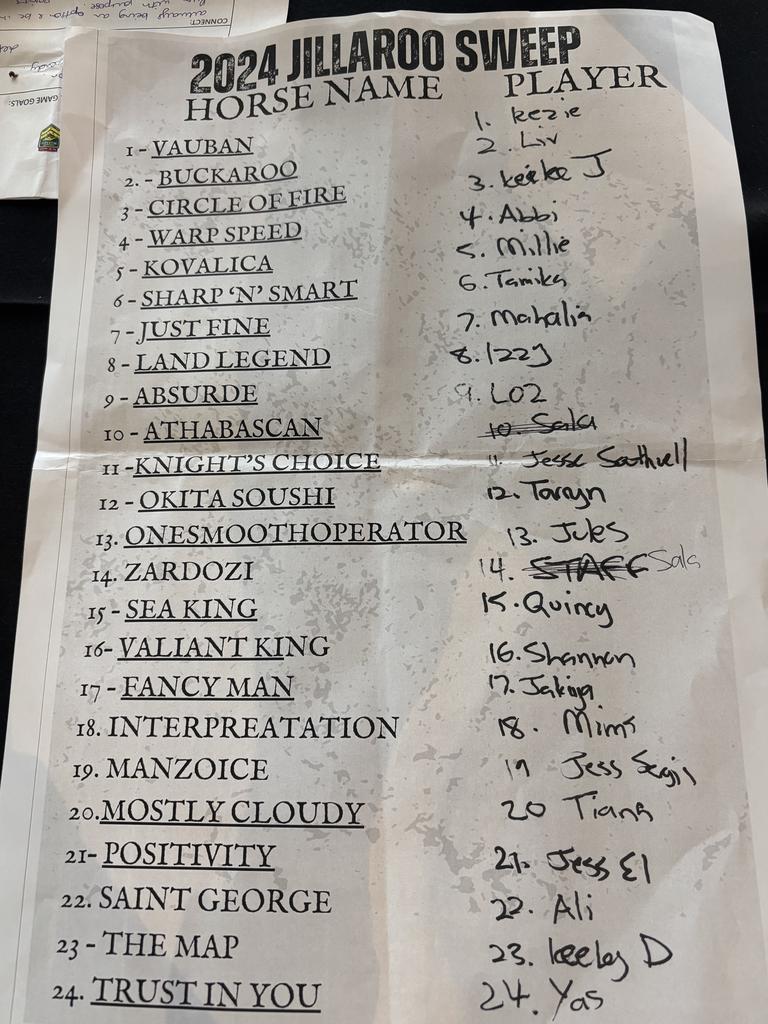 CONNECT:
GAME GOALS:
2024 JILLAROO SWEEP
HORSE NAME PLAYER
1 - VAUBAN 1. Kezie
2. - BUCKAROO 2. Liv
3 - CIRCLE OF FIRE 3. Keeke J
4 - WARP SPEED 4. Abbi
5 - KOVALICA 5. Millie
6 - SHARP 'N' SMART 6. Tamika
7 - JUST FINE 7. Mahalia
8 - LAND LEGEND 8. Izzy
9 - ABSURDE 9. LOZ
10 - ATHABASCAN 10. Sala
11 -KNIGHT'S CHOICE 11. Jesse Southwell
12 - OKITA SOUSHI 12. Taryn
13. ONESMOOTHOPERATOR 13. Jules
14. ZARDOZI 14. STAFF Sala
15 - SEA KING 15. Quincy
16- VALIANT KING 16. Shannon
17 - FANCY MAN 17. Jakiya
18. INTERPREATATION 18. Mims
19. MANZOICE 19 Jess Sergis
20.MOSTLY CLOUDY 20 Tiana
21- POSITIVITY 21. Jess El
22. SAINT GEORGE 22. Ali
23 - THE MAP 23. Keeley D
24. TRUST IN YOU 24. Yas